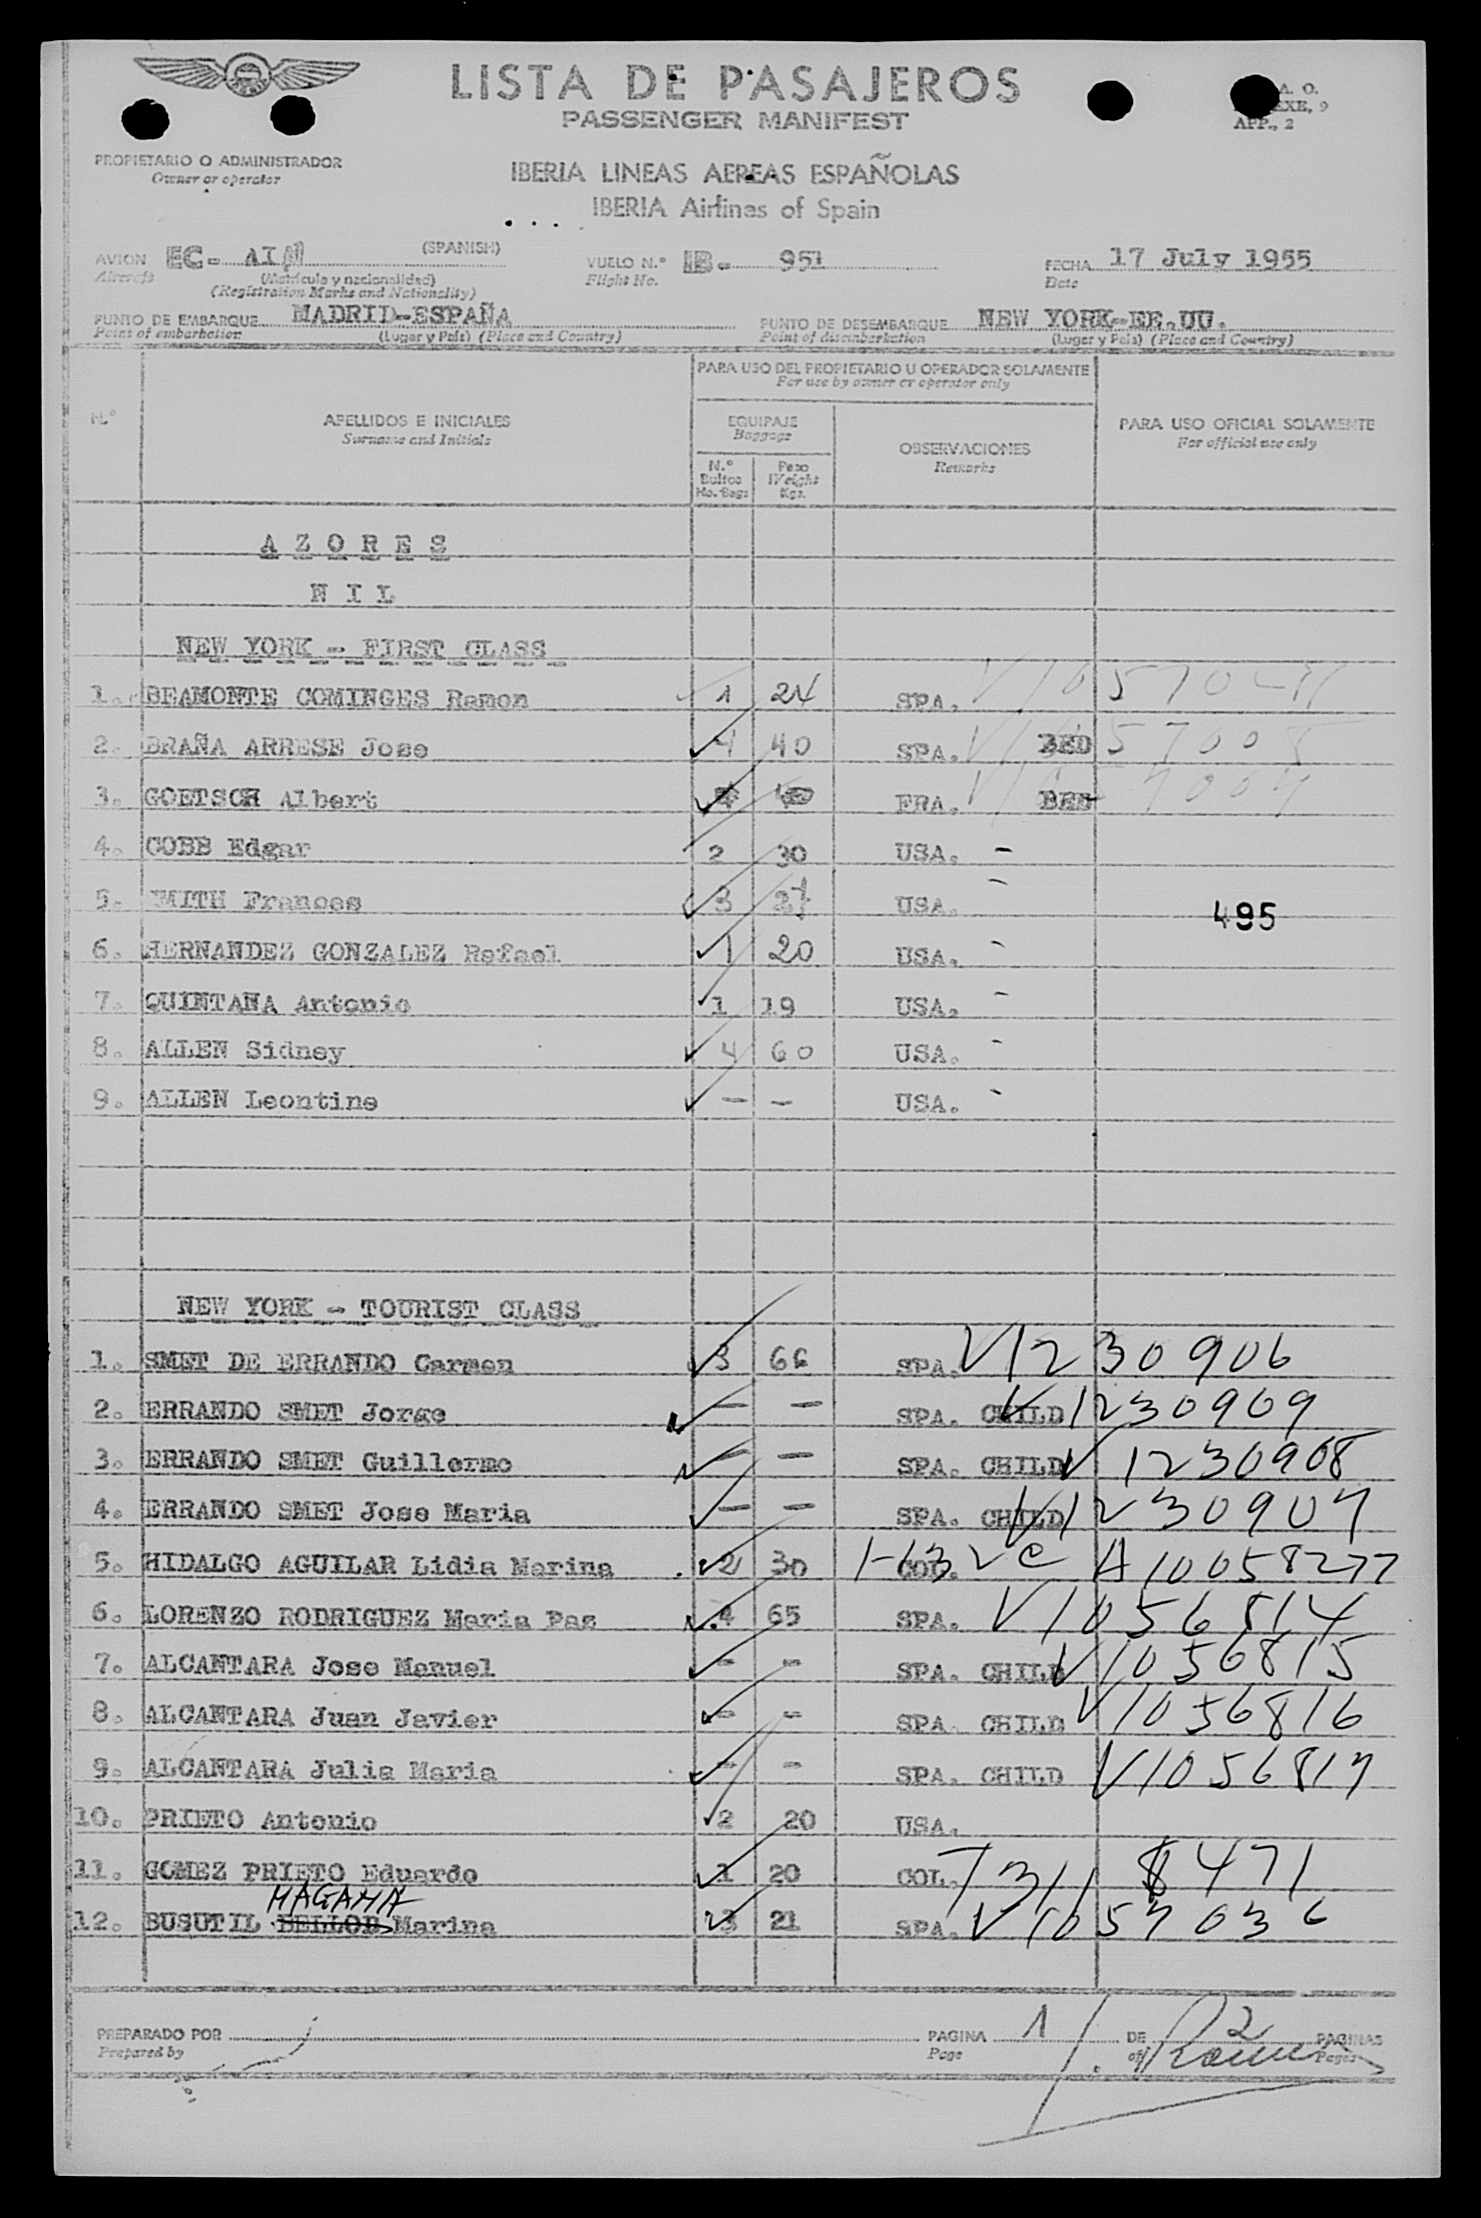 LISTA DE PASAJEROS
PASSENGER MANIFEST
A. O.
EXE, 9
APP., 2
PROPIETARIO O ADMINISTRADOR
Owner or operator
IBERIA LINEAS AEREAS ESPAÑOLAS
IBERIA Airlines of Spain
AVION EC- AIN (SPANISH)
Aircraft (Matrícula y nacionalidad)
(Registration Marks and Nationality)
VUELO N.º IB- 951
Flight No.
FECHA 17 July 1955
Date
PUNTO DE EMBARQUE MADRID-ESPAÑA
Point of embarkation (Lugar y País) (Place and Country)
PUNTO DE DESEMBARQUE NEW YORK-EE.UU.
Point of disembarkation (Lugar y País) (Place and Country)
N.º
APELLIDOS E INICIALES
Surname and Initials
PARA USO DEL PROPIETARIO U OPERADOR SOLAMENTE
For use by owner or operator only
EQUIPAJE
Baggage
N.º Bultos
No. Bags
Peso
Weight
Kgs.
OBSERVACIONES
Remarks
PARA USO OFICIAL SOLAMENTE
For official use only
A Z O R E S
N I L
NEW YORK - FIRST CLASS
1. BEAMONTE COMINGES Ramon 1 24 SPA.
2. BRAÑA ARRESE Jose 4 40 SPA. BED V1057008
3. GOETSCH Albert FRA. BED
4. COBB Edgar 2 30 USA. -
5. SMITH Frances 3 27 USA. -
495
6. HERNANDEZ GONZALEZ Rafael 1 20 USA. -
7. QUINTANA Antonio 1 19 USA. -
8. ALLEN Sidney 4 60 USA. -
9. ALLEN Leontine - - USA. -
NEW YORK - TOURIST CLASS
1. SMET DE ERRANDO Carmen 3 66 SPA. V1230906
2. ERRANDO SMET Jorge - - SPA. CHILD V1230909
3. ERRANDO SMET Guillermo - - SPA. CHILD V1230908
4. ERRANDO SMET Jose Maria - - SPA. CHILD V1230907
5. HIDALGO AGUILAR Lidia Marina 2 30 COL. A10058277
6. LORENZO RODRIGUEZ Maria Paz 4 65 SPA. V1056814
7. ALCANTARA Jose Manuel - - SPA. CHILD V1056815
8. ALCANTARA Juan Javier - - SPA. CHILD V1056816
9. ALCANTARA Julia Maria - - SPA. CHILD V1056817
10. PRIETO Antonio 2 20 USA.
11. GOMEZ PRIETO Eduardo 1 20 COL. T311 8471
MAGAMA
12. BUSUTIL BELLOD Marina 3 21 SPA. V1057036
PREPARADO POR
Prepared by
PAGINA 1 DE 2 PAGINAS
Page of Pages